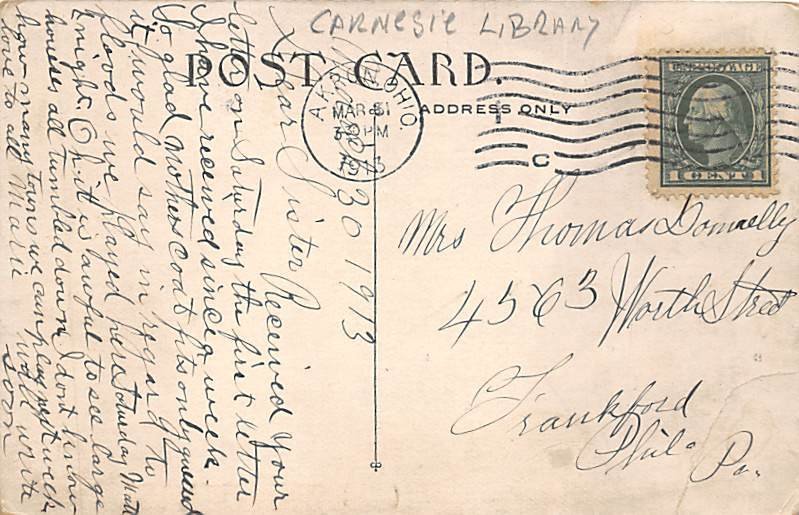 CARNEGIE LIBRARY
POST CARD.
ADDRESS ONLY
AKRON, OHIO.
MAR 31
3 30 PM
1913
U.S. POSTAGE
1 CENT 1
C
March 30 1913
Dear Sister Received your
letter on Saturday the first letter
I have received since a week.
So glad mothers coat fits only
it would say in regard to
floods we played here Saturday Matt
& night. Oh it is awful to see large
houses all tumbled down I dont know
how many towns we can play next week
love to all Marie will write
soon
Mrs Thomas Donnelly
4563 Worth Street
Frankford
Phil.
Pa.